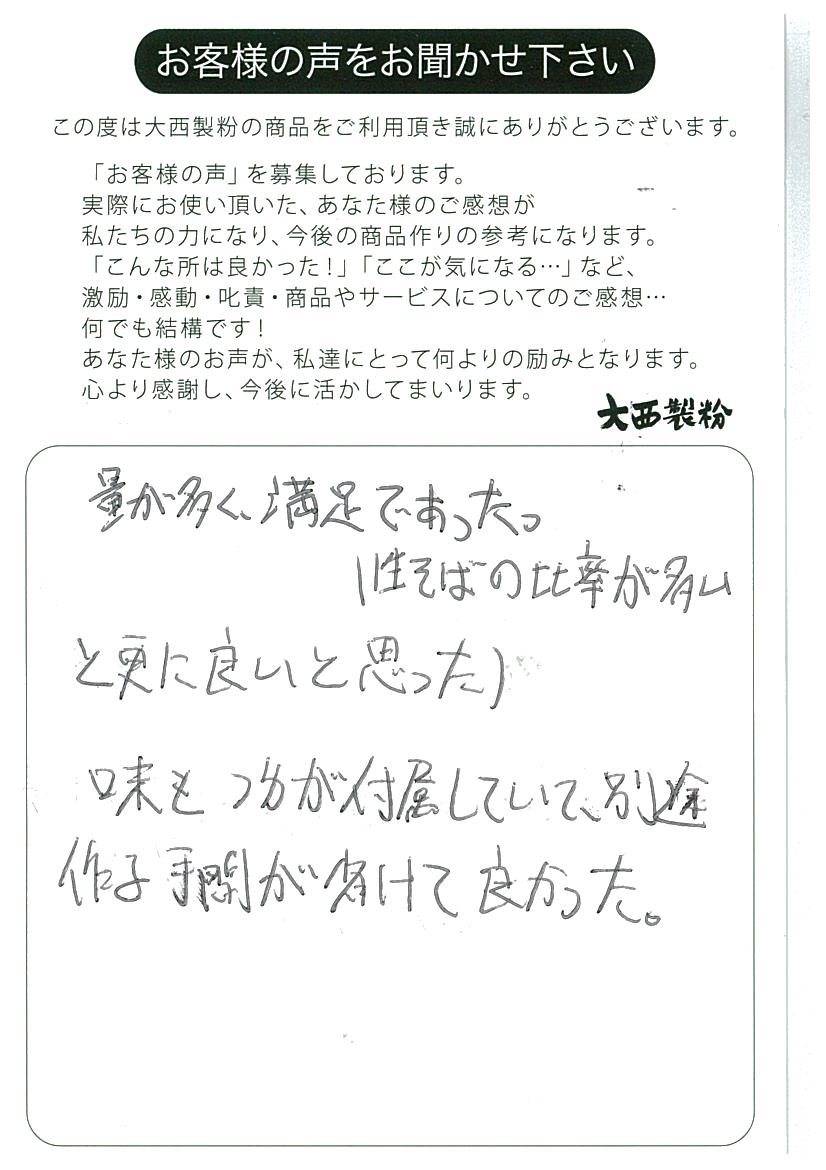 お客様の声をお聞かせ下さい
この度は大西製粉の商品をご利用頂き誠にありがとうございます。
「お客様の声」を募集しております。
実際にお使い頂いた、あなた様のご感想が
私たちの力になり、今後の商品作りの参考になります。
「こんな所は良かった!」「ここが気になる…」など、
激励・感動・叱責・商品やサービスについてのご感想…
何でも結構です!
あなた様のお声が、私達にとって何よりの励みとなります。
心より感謝し、今後に活かしてまいります。
大西製粉
量が多く、満足であった。
(生そばの比率が多い
と更に良いと思った)
味も つゆが付属していて、別途
作る手間が省けて良かった。